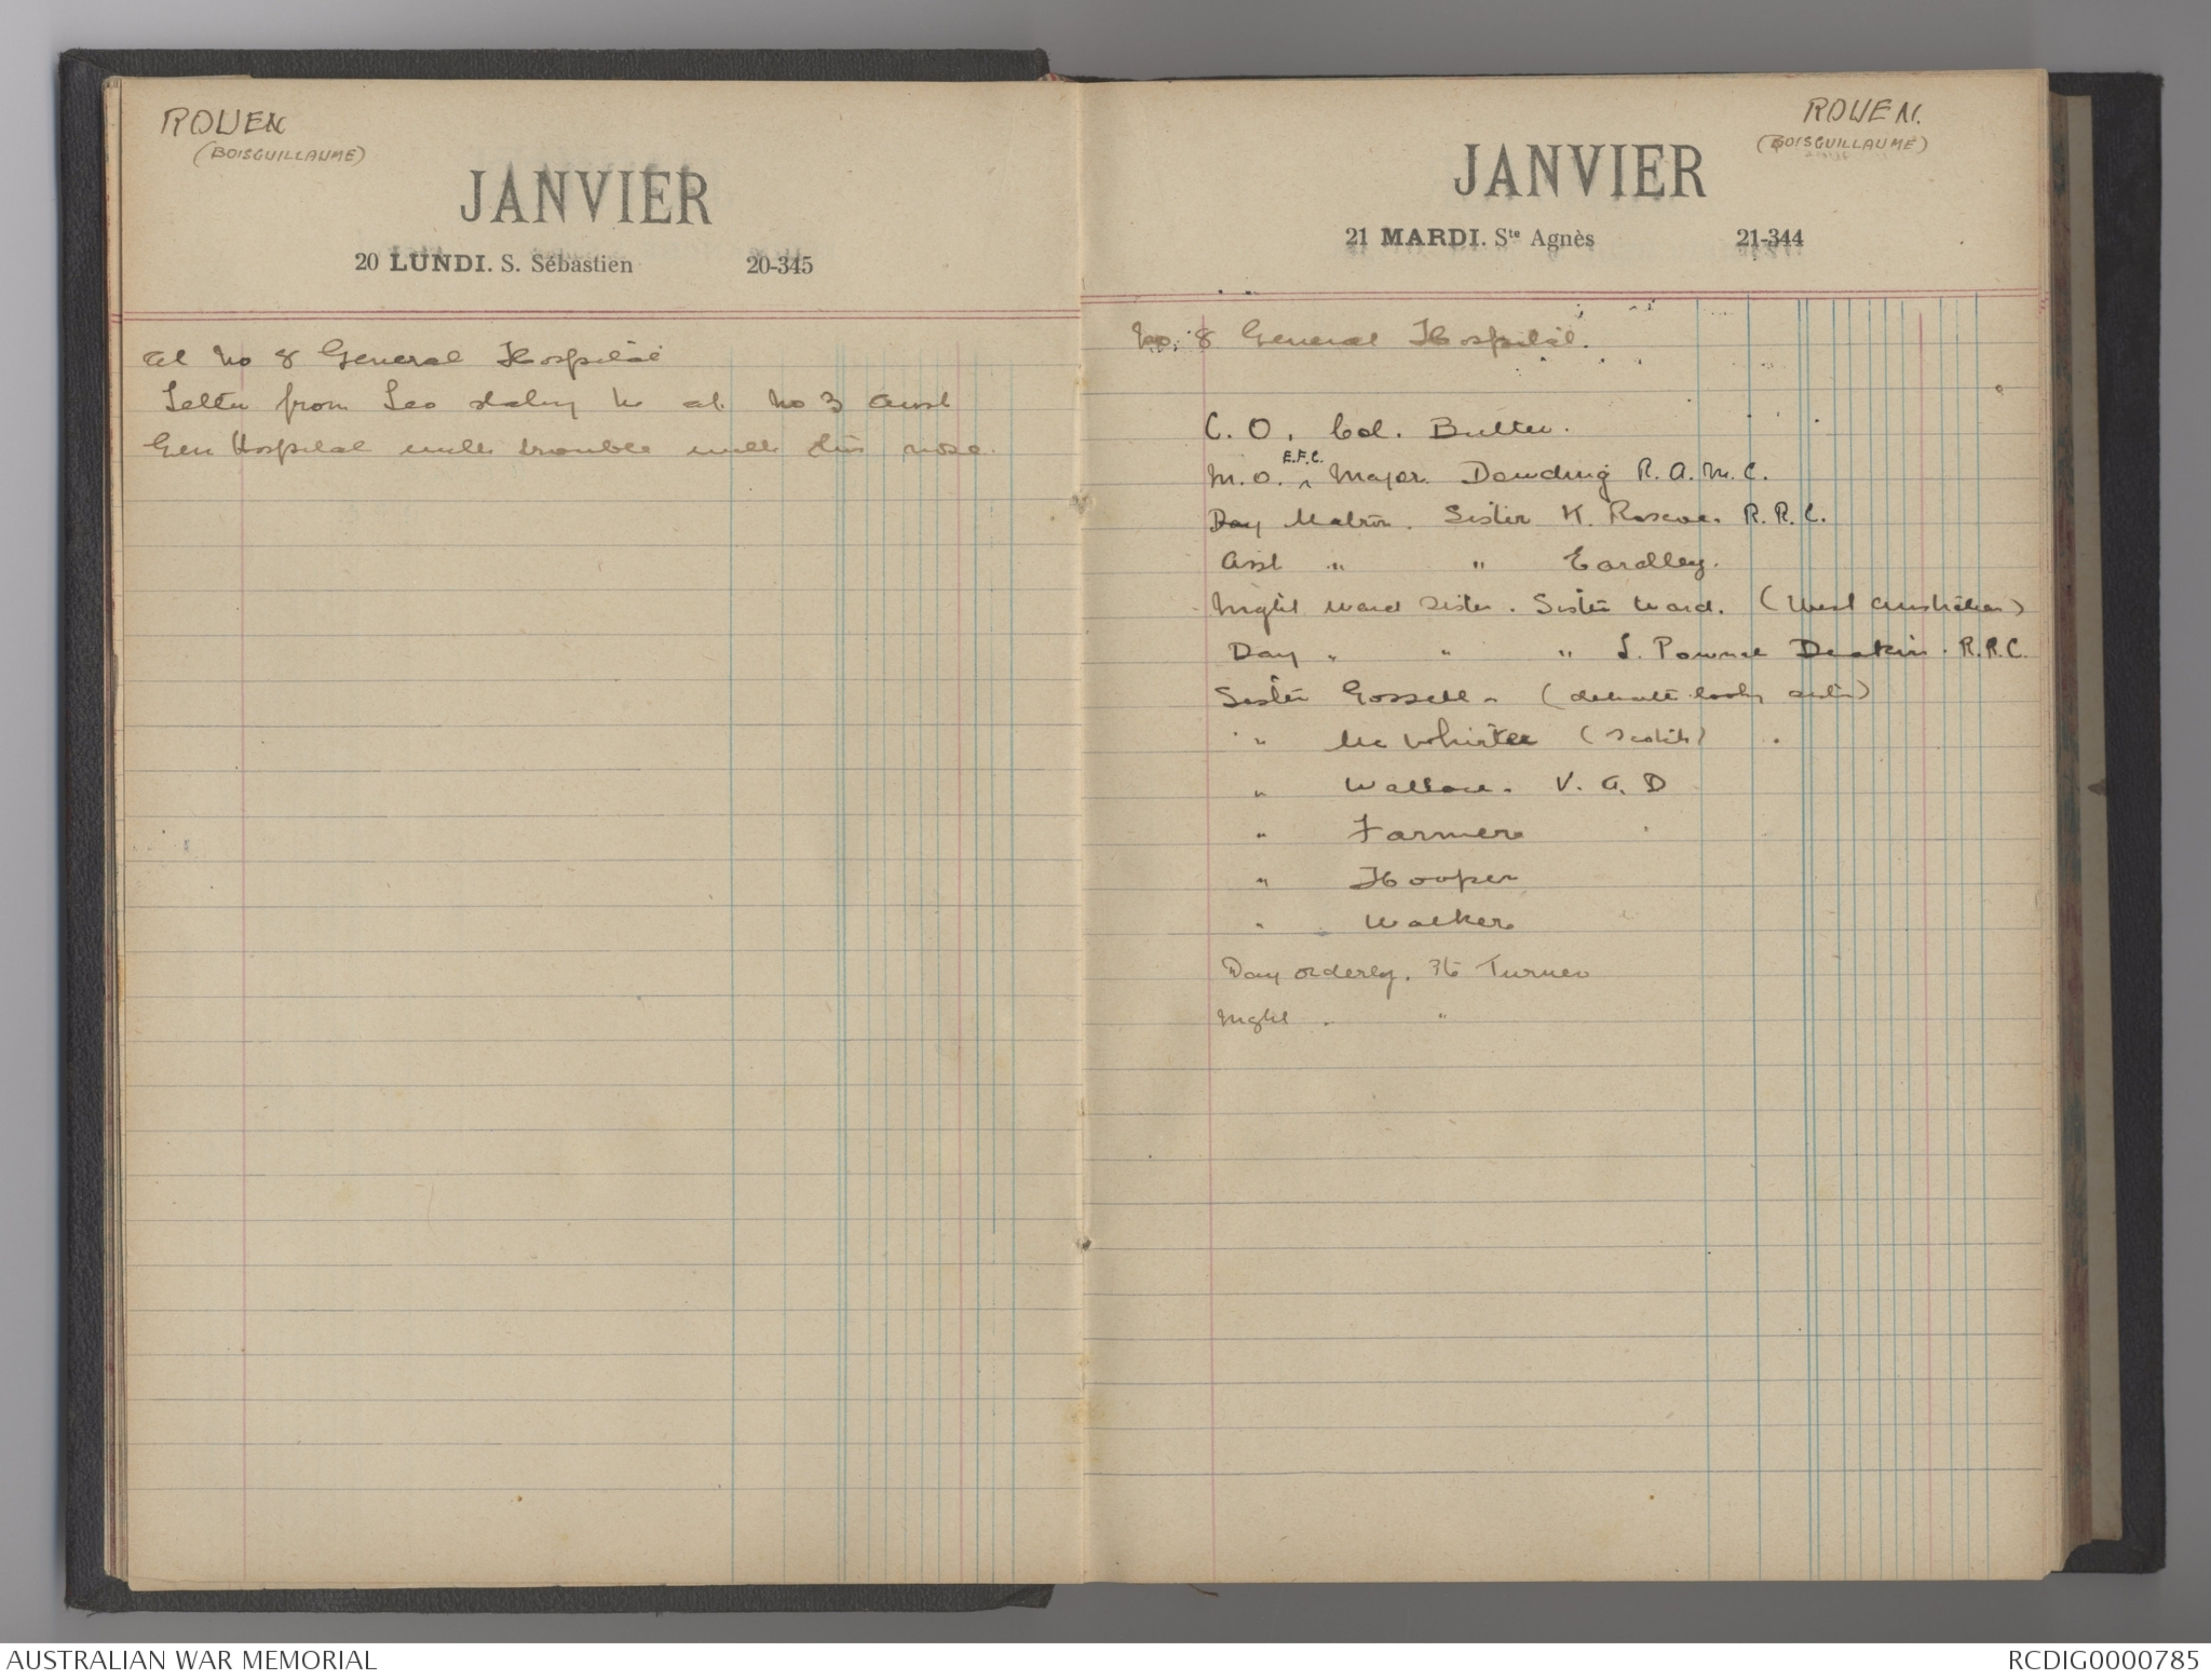 ROUEN
(BOISGUILLAUME)
JANVIER
20 LUNDI. S. Sébastien 20-345
At No 8 General Hospital
Letter from Leo stating he at No 3 Aust
Gen Hospital with trouble with his nose.
ROUEN.
(BOISGUILLAUME)
JANVIER
21 MARDI. Ste Agnès 21-344
No. 8 General Hospital.
C. O. Col. Butler.
M. O. E.F.C. Major Dowding R. A. M. C.
Day Matron. Sister K. Roscoe. R. R. C.
Asst " " Eardley.
Night ward sister. Sister Ward. (West Australian)
Day " " " L. Pownce Deakin. R.R.C.
Sister Gossell. (delicate looking sister)
" McWhirter (Scotch)
" Wallace. V. A. D
" Farmer
" Hooper
" Walker
Day orderly. Pte Turner
Night " "
AUSTRALIAN WAR MEMORIAL
RCDIG0000785